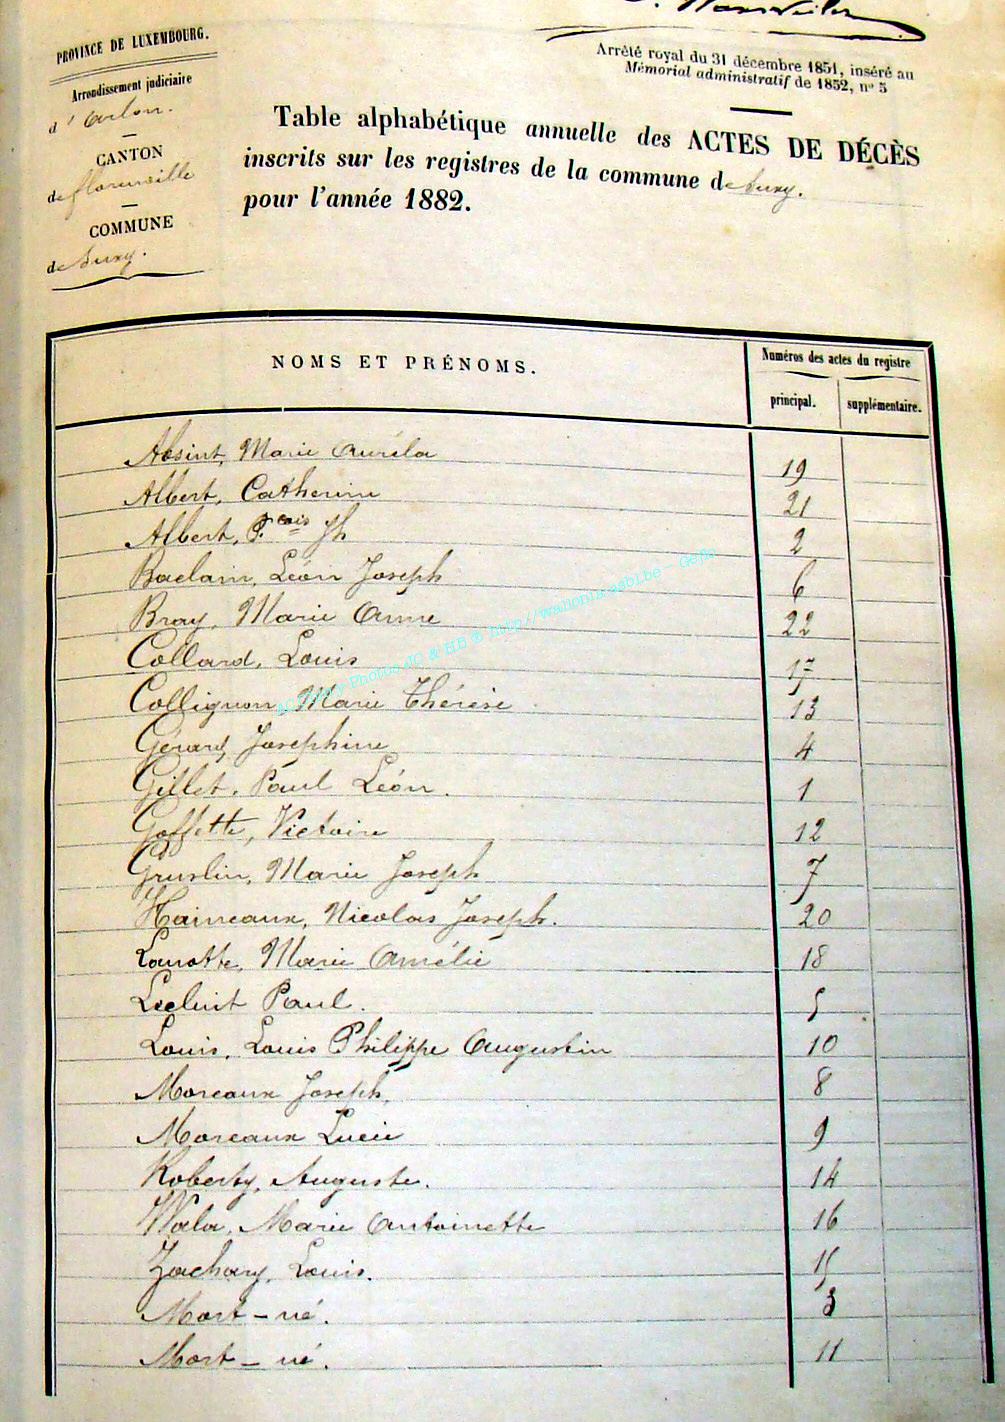 PROVINCE DE LUXEMBOURG.
Arrondissement judiciaire
d'Arlon.
CANTON
de florenville
COMMUNE
de Suxy.
Arrêté royal du 31 décembre 1851, inséré au
Mémorial administratif de 1852, nº 5
Table alphabétique annuelle des ACTES DE DÉCÈS
inscrits sur les registres de la commune de Suxy.
pour l'année 1882.
NOMS ET PRÉNOMS.
Numéros des actes du registre
principal. supplémentaire.
Absint, Marie Auréla 19
Albert, Catherine 21
Albert, F.cois Jh 2
Baclain, Léon Joseph 6
Bray, Marie Anne 22
Collard, Louis 17
Collignon, Marie Thérèse 13
Gérard, Josephine 4
Gillet, Paul Léon. 1
Goffette, Victoire 12
Gruslin, Marie Joseph 7
Haineaux, Nicolas Joseph. 20
Lamotte, Marie Amélie 18
Paul. 5
Louis, Louis Philippe Augustin 10
Moreaux Joseph, 8
Moreaux Lucie 9
Roberty, Auguste. 14
Wala, Marie Antoinette 16
Zachary, Louis. 15
Mort-né. 3
Mort-né. 11